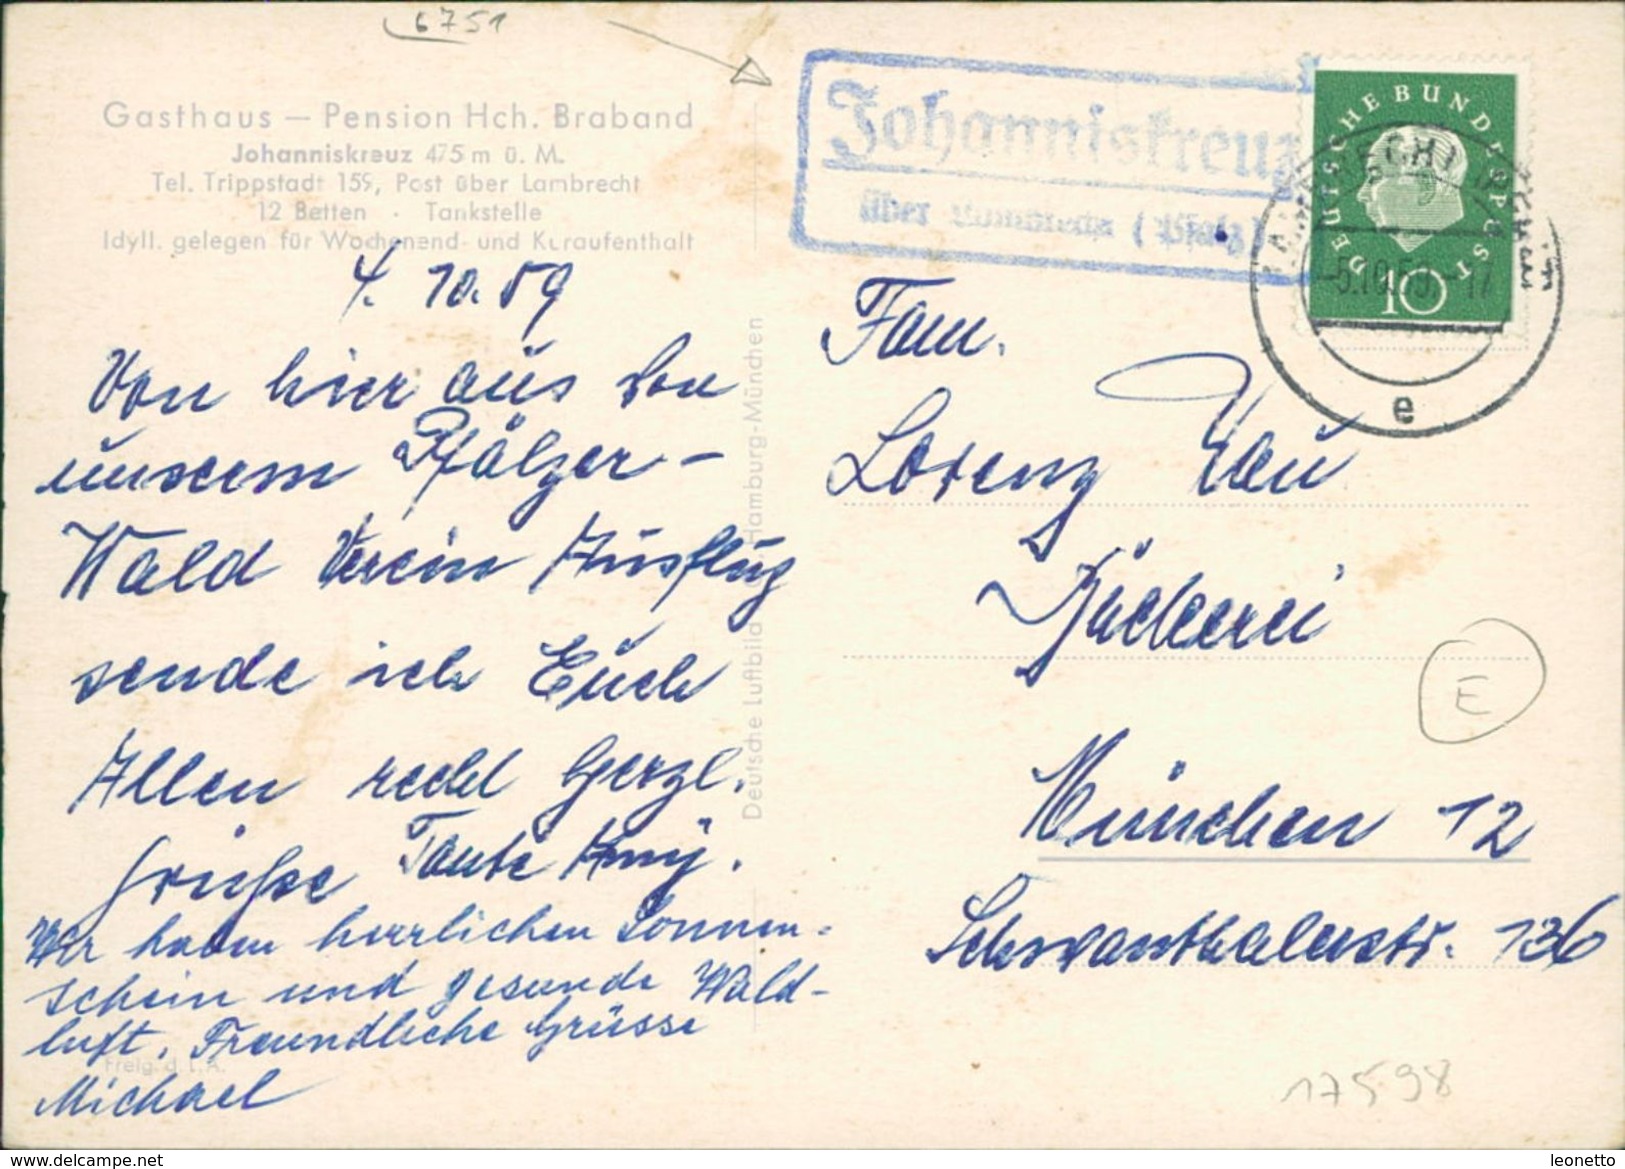 6751
Gasthaus — Pension Hch. Braband
Johanniskreuz 475 m ü. M.
Tel. Trippstadt 159, Post über Lambrecht
12 Betten · Tankstelle
Idyll. gelegen für Wochenend- und Kuraufenthalt
4. 10. 59
Von hier aus von
unserem Pfälzer-
Wald Verein Ausflug
sende ich Euch
Allen recht herzl.
Grüße Tante Anny.
Wir haben herrlichen Sonnen-
schein und gesunde Wald-
luft. Freundliche Grüsse
Michael
Freig. d. L.A.
Deutsche Luftbild Hamburg-München
Johanniskreuz
über Lambrecht (Pfalz)
DEUTSCHE BUNDESPOST
10
LAMBRECHT (PFALZ)
-5.10.59.-17
e
Fam.
Lorenz
Bäckerei
München 12
Schwanthalerstr. 136
E
17598
leonetto
www.delcampe.net